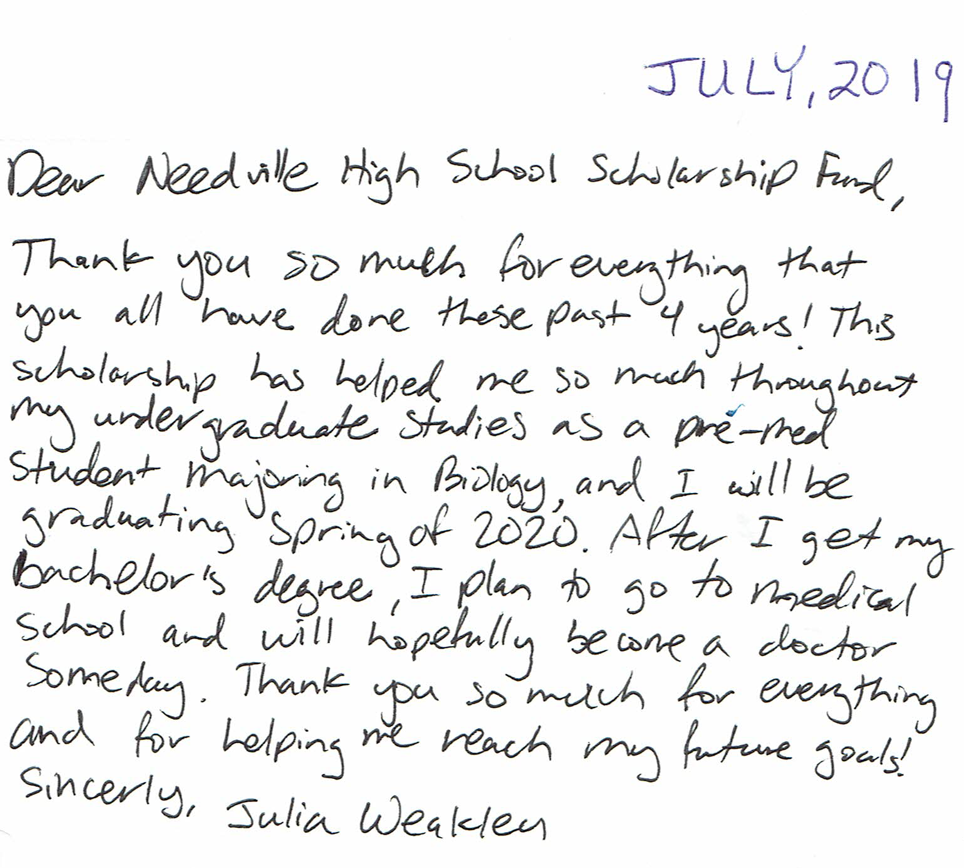 JULY, 2019
Dear Needville High School Scholarship Fund,
Thank you so much for everything that
you all have done these past 4 years! This
scholarship has helped me so much throughout
my undergraduate studies as a pre-med
student majoring in Biology, and I will be
graduating Spring of 2020. After I get my
bachelor's degree, I plan to go to medical
school and will hopefully become a doctor
someday. Thank you so much for everything
and for helping me reach my future goals!
Sincerly, Julia Weakley